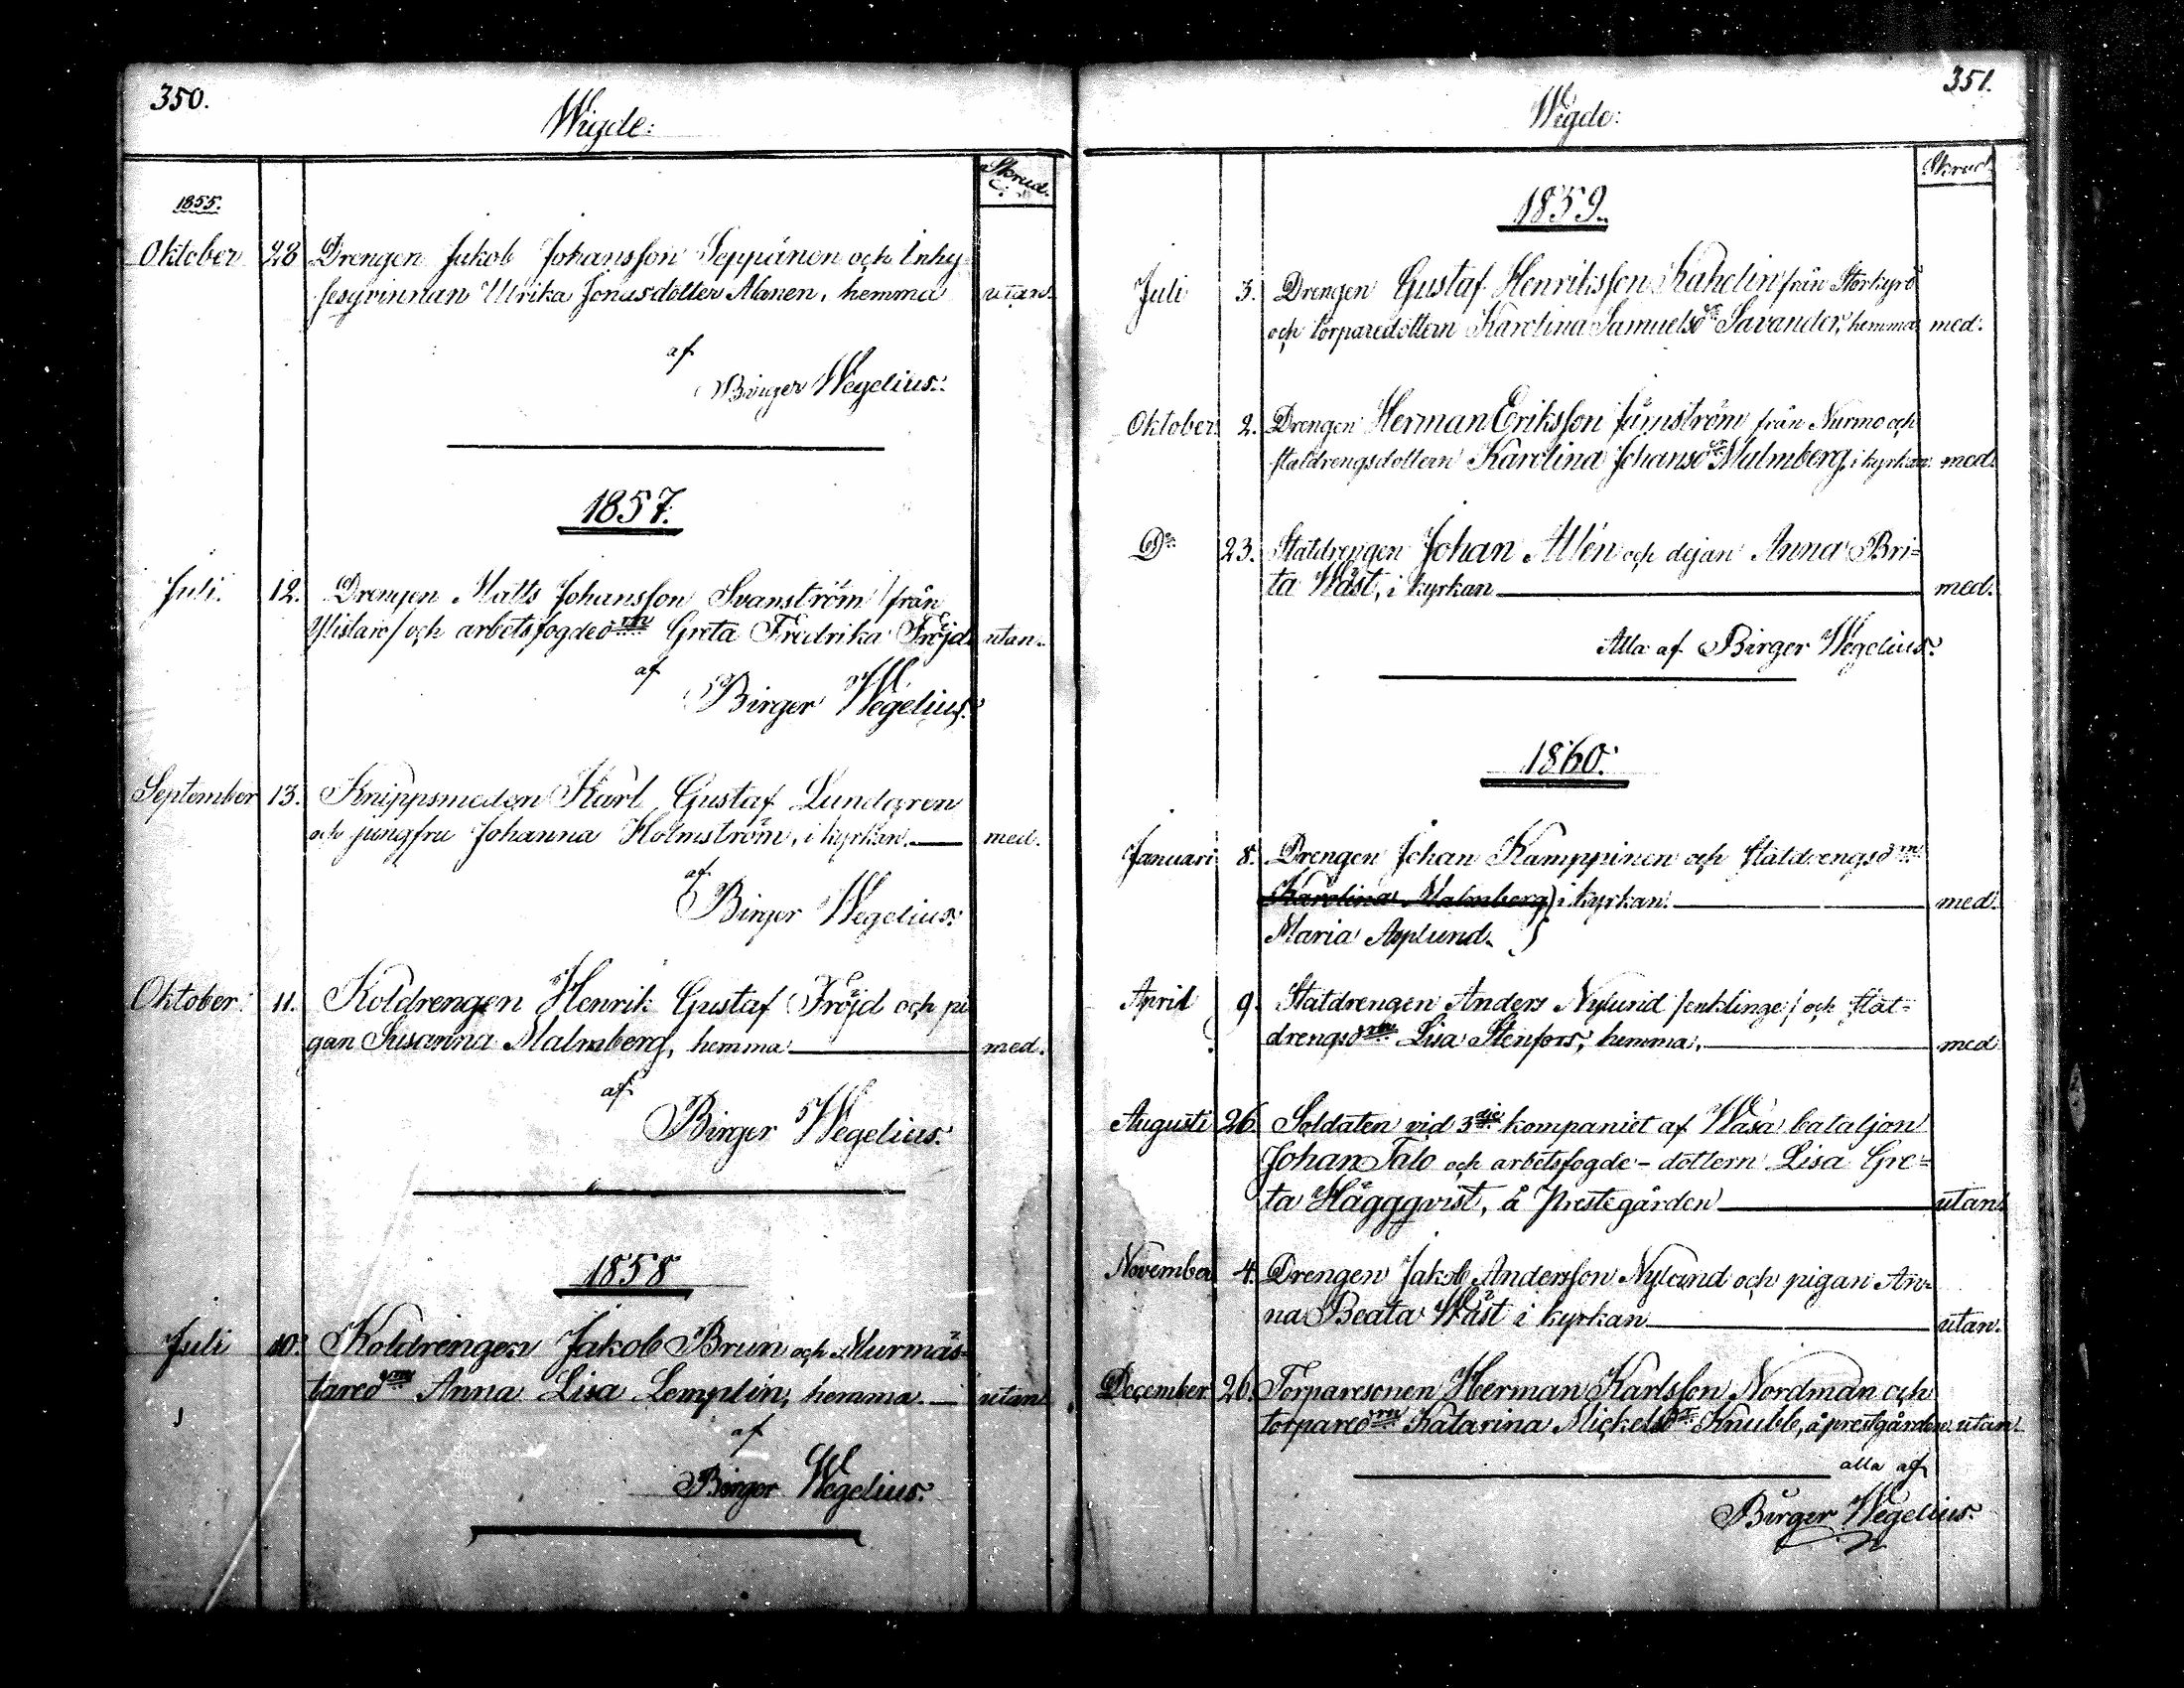 350.
Wigde:
Skrud.
1855.
Oktober 28 Drengen Jakob Johansson Seppänen och Inhy-
sesqvinnan Ulrika Jonasdotter Alanen, hemma utan.
af
Birger Wegelius.
1857.
Juli. 12. Drengen Matts Johansson Svanström /från
Ylistaro/ och arbetsfogded:rn Greta Fredrika Fröjd utan.
af
Birger Wegelius.
September 13. Knippsmeden Karl Gustaf Lundgren
och jungfru Johanna Holmström, i kyrkan. med.
af
Birger Wegelius.
Oktober 11. Koldrengen Henrik Gustaf Fröjd och pi
gan Susanna Malmberg, hemma med.
af
Birger Wegelius.
1858
Juli 10. Koldrengen Jakob Brun och Murmäs-
tared:rn Anna Lisa Lemplin, hemma. utan
af
Birger Wegelius.
351.
Wigde:
Skrud.
1859.
Juli 3. Drengen Gustaf Henriksson Kahelin från Storkyrö
och torparedottern Karolina Samuelsd:r Savander, hemma med.
Oktober 2. Drengen Herman Eriksson Järnström från Nurmo och
statdrengsdottern Karolina Johansd:r Malmberg, i kyrkan. med.
D:o 23. Statdrengen Johan Allén och dejan Anna Bri-
ta Wäst, i kyrkan med.
Alla af Birger Wegelius.
1860.
Januari 8. Drengen Johan Kamppinen och statdrengsd:rn
Karolina Malmberg } i kyrkan. med.
Maria Asplund.
April 9. Statdrengen Anders Nylund /enklinge/ och stat-
drengsd:rn Lisa Stenfors, hemma. med
Augusti 26. Soldaten vid 3:dje kompaniet af Wasa bataljon
Johan Talo och arbetsfogde-dottern Lisa Gre-
ta Häggqvist, å Prestegården utan.
November 4. Drengen Jakob Andersson Nylund och pigan An-
na Beata Wäst i kyrkan utan.
December 26. Torparesonen Herman Karlsson Nordman och
torpared:rn Katarina Mickelsd:r Knubb, å prestgården. utan.
alla af
Birger Wegelius.